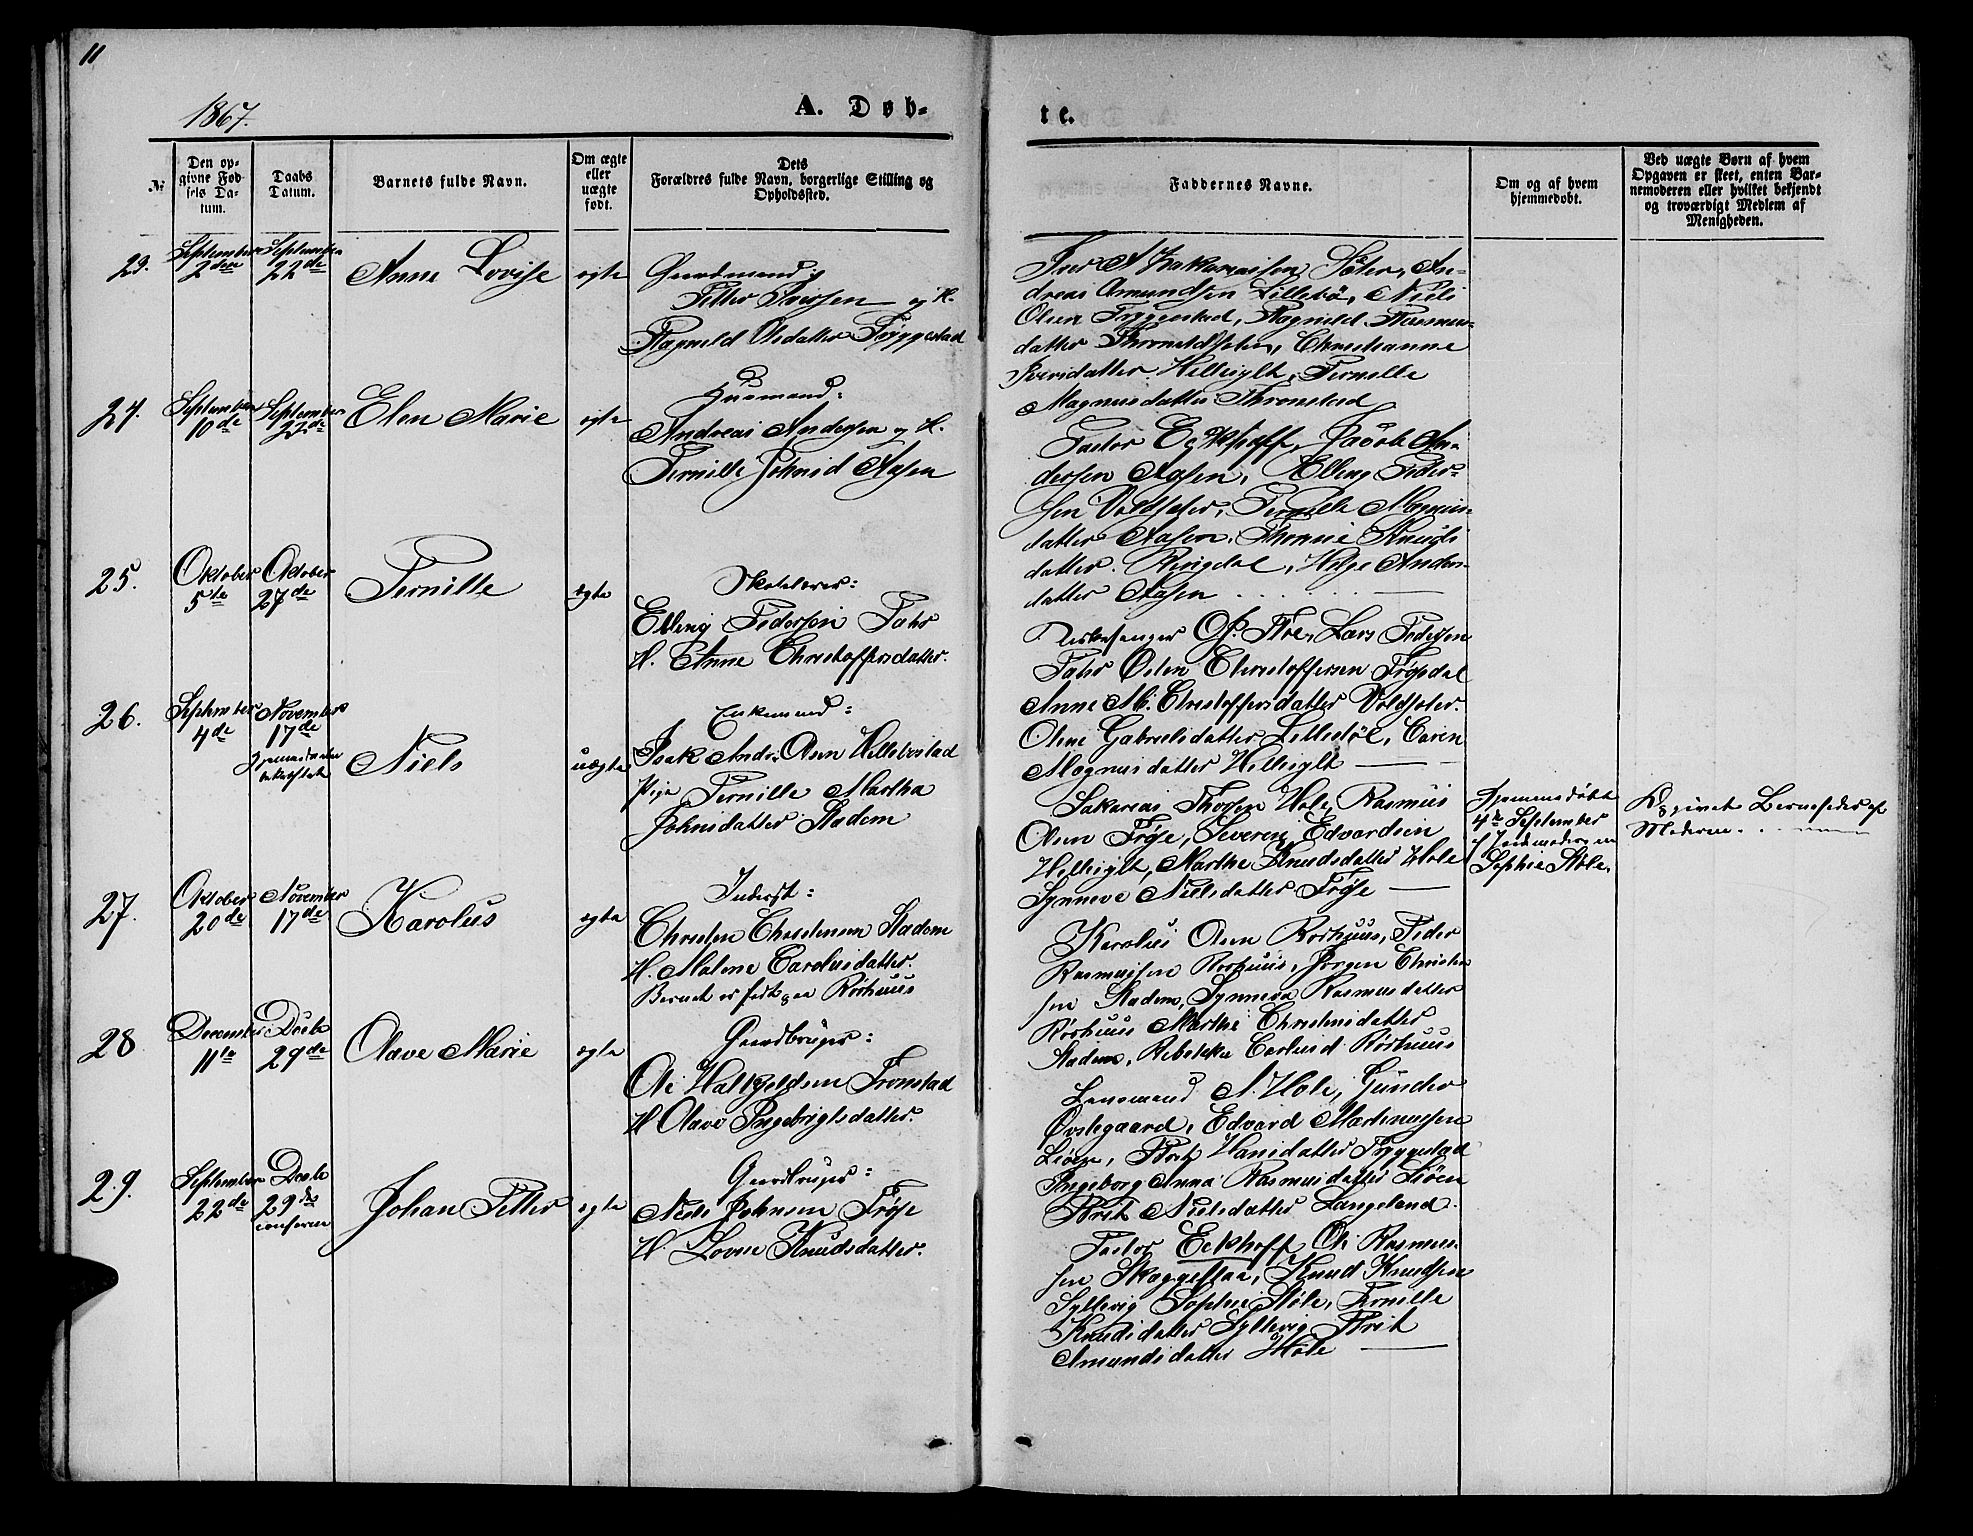 11
1867.
A. Døb-
te.
№
Den op-
givne Fød-
sels Da-
tum.
Daabs
Datum.
Barnets fulde Navn.
Om ægte
eller
uægte
født.
Dets
Forældres fulde Navn, borgerlige Stilling og
Opholdssted.
Faddernes Navne.
Om og af hvem
hjemmedøbt.
Ved uægte Børn af hvem
Opgaven er skeet, enten Bar-
nemoderen eller hvilket bekjendt
og troværdigt Medlem af
Menigheden.
23.
September
2den
September
22de
Anne Lovise
egte
Gaardmand
Petter Iversen og H.
Ragnild Olsdatter Tryggestad
Iver A Zakariassen Sæter, An-
dreas Amundsen Lillebø, Niels
Olsen Tryggestad, Ragnild Rasmus-
datter, Christianne
Iversdatter Hellsylt, Pernille
Magnusdatter Thronstad
24.
September
10de
September
22de
Elen Marie
egte
Husmand:
Andreas Andersen og H.
Pernille Johnsd Aasen
Pastor Eckhoff, Jacob An-
dersen Aasen, Elling Peder-
sen Voldsæter, Pernille Magnus-
datter Aasen, Thomine Knuds
datter Ringdal, Helge Anders-
datter Aasen
25.
Oktober
5te
Oktober
27de
Pernille
egte
Skolelærer:
Elling Pedersen
H. Anne Christoffersdatter.
Kirkesanger Lars Pedersen
Christoffersen
Anne M. Christoffersdatter Voldsæter.
Oline Gabrielsdatter Caren
Magnusdatter Hellsylt
26.
September
4de
November
17de
Niels
uægte
Enkemand:
Isak Andr. Olsen
Pige Pernille Martha
Johnsdatter Stadem
Sakarias Hole, Rasmus
Olsen Frøse, Severin Edvardsen
Hellsylt, Marthe Knudsdatter Hole
Synneve Nielsdatter Frøse
Hjemmedøbt
4de September
af Jordmoderen
Sophie Hole.
Opgivet Barnefader af
Moderen.
27.
Oktober
20de
November
17de
Karolus
egte
Inderst:
Christen Christensen Stadem
H. Malene Carolusdatter.
Barnet er født paa Rørhuus
Karolus Olsen Rørhuus, Peder
Rasmussen Rørhuus, Jørgen Christen
sen Stadem, Synneva Rasmusdatter
Rørhuus Marthe Christensdatter
Stadem, Rebekka Carlusd Rørhuus
28
December
11te
Decbr
29de
Olave Marie
egte
Gaardbruger:
Ole Hallgeldsen Tronstad
H Olave Ingebrigtsdatter.
Lensmand N. Hole, Gunder
Øvstegaard, Edvard Martinussen
Liøen, Brit Hansdatter Tryggestad
Ingeborg Anna Rasmusdatter Liøen
Brit Nielsdatter Langeland.
29.
September
22de
Decbr
29de
Johan Petter
egte
Gaardbruger:
Niels Johnsen Frøse
H. Lovise Knudsdatter.
Pastor Eckhoff, Ole Rasmus-
sen Skaggeflaa, Knud Knudsen
Syltevig Sophie Hole, Pernille
Knudsdatter Syltevig Brit
Amundsdatter Hole